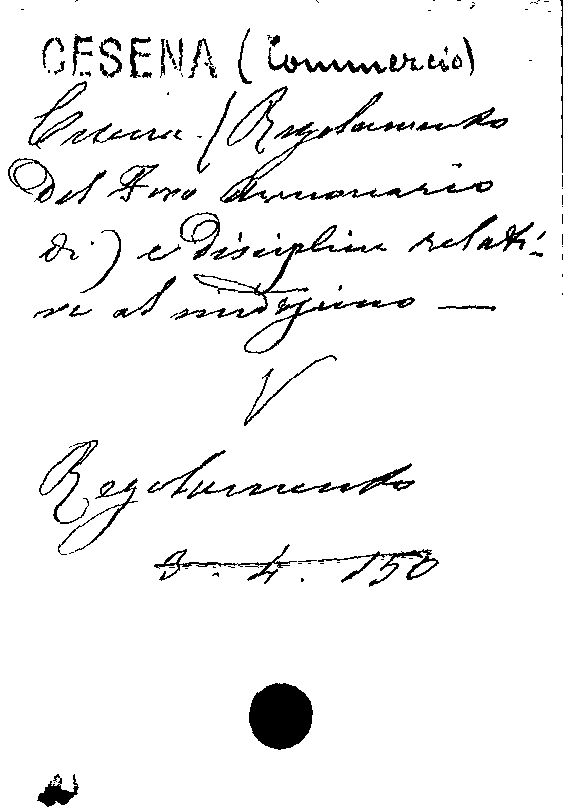 CESENA (Commercio)
Cesena. (Regolamento
del Foro Annonario
di) e discipline relati-
ve al medesimo —
V
Regolamento
3. 4. 150